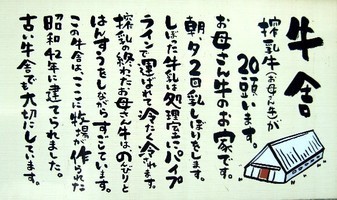 牛舎
搾乳牛(お母さん牛)が
20頭います。
お母さん牛のお家です。
朝、夕2回乳しぼりをします。
しぼった牛乳は処理室にパイプ
ラインで運ばれて冷たく冷されます。
搾乳の終わったお母さん牛は、のんびりと
はんすうをしながらすごしています。
この牛舎は、ここに牧場が作られた
昭和42年に建てられました。
古い牛舎でも大切にしています。